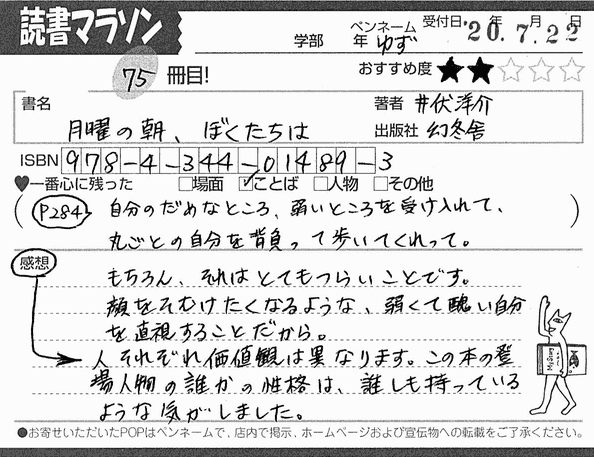 読書マラソン
学部 年 ペンネーム ゆず 受付日 '20年 7月 22日
75 冊目!
おすすめ度 ★★☆☆☆
書名 著者 井伏洋介
月曜の朝、ぼくたちは 出版社 幻冬舎
ISBN 978-4-344-01489-3
♥一番心に残った □場面 ☑ことば □人物 □その他
(P284 自分のだめなところ、弱いところを受け入れて、
丸ごとの自分を背負って歩いてくれって。)
感想
もちろん、それはとてもつらいことです。
顔をそむけたくなるような、弱くて醜い自分
を直視することだから。
人それぞれ価値観は異なります。この本の登
場人物の誰かの性格は、誰しも持っている
ような気がしました。
●お寄せいただいたPOPはペンネームで、店内で掲示、ホームページおよび宣伝物への転載をご了承ください。